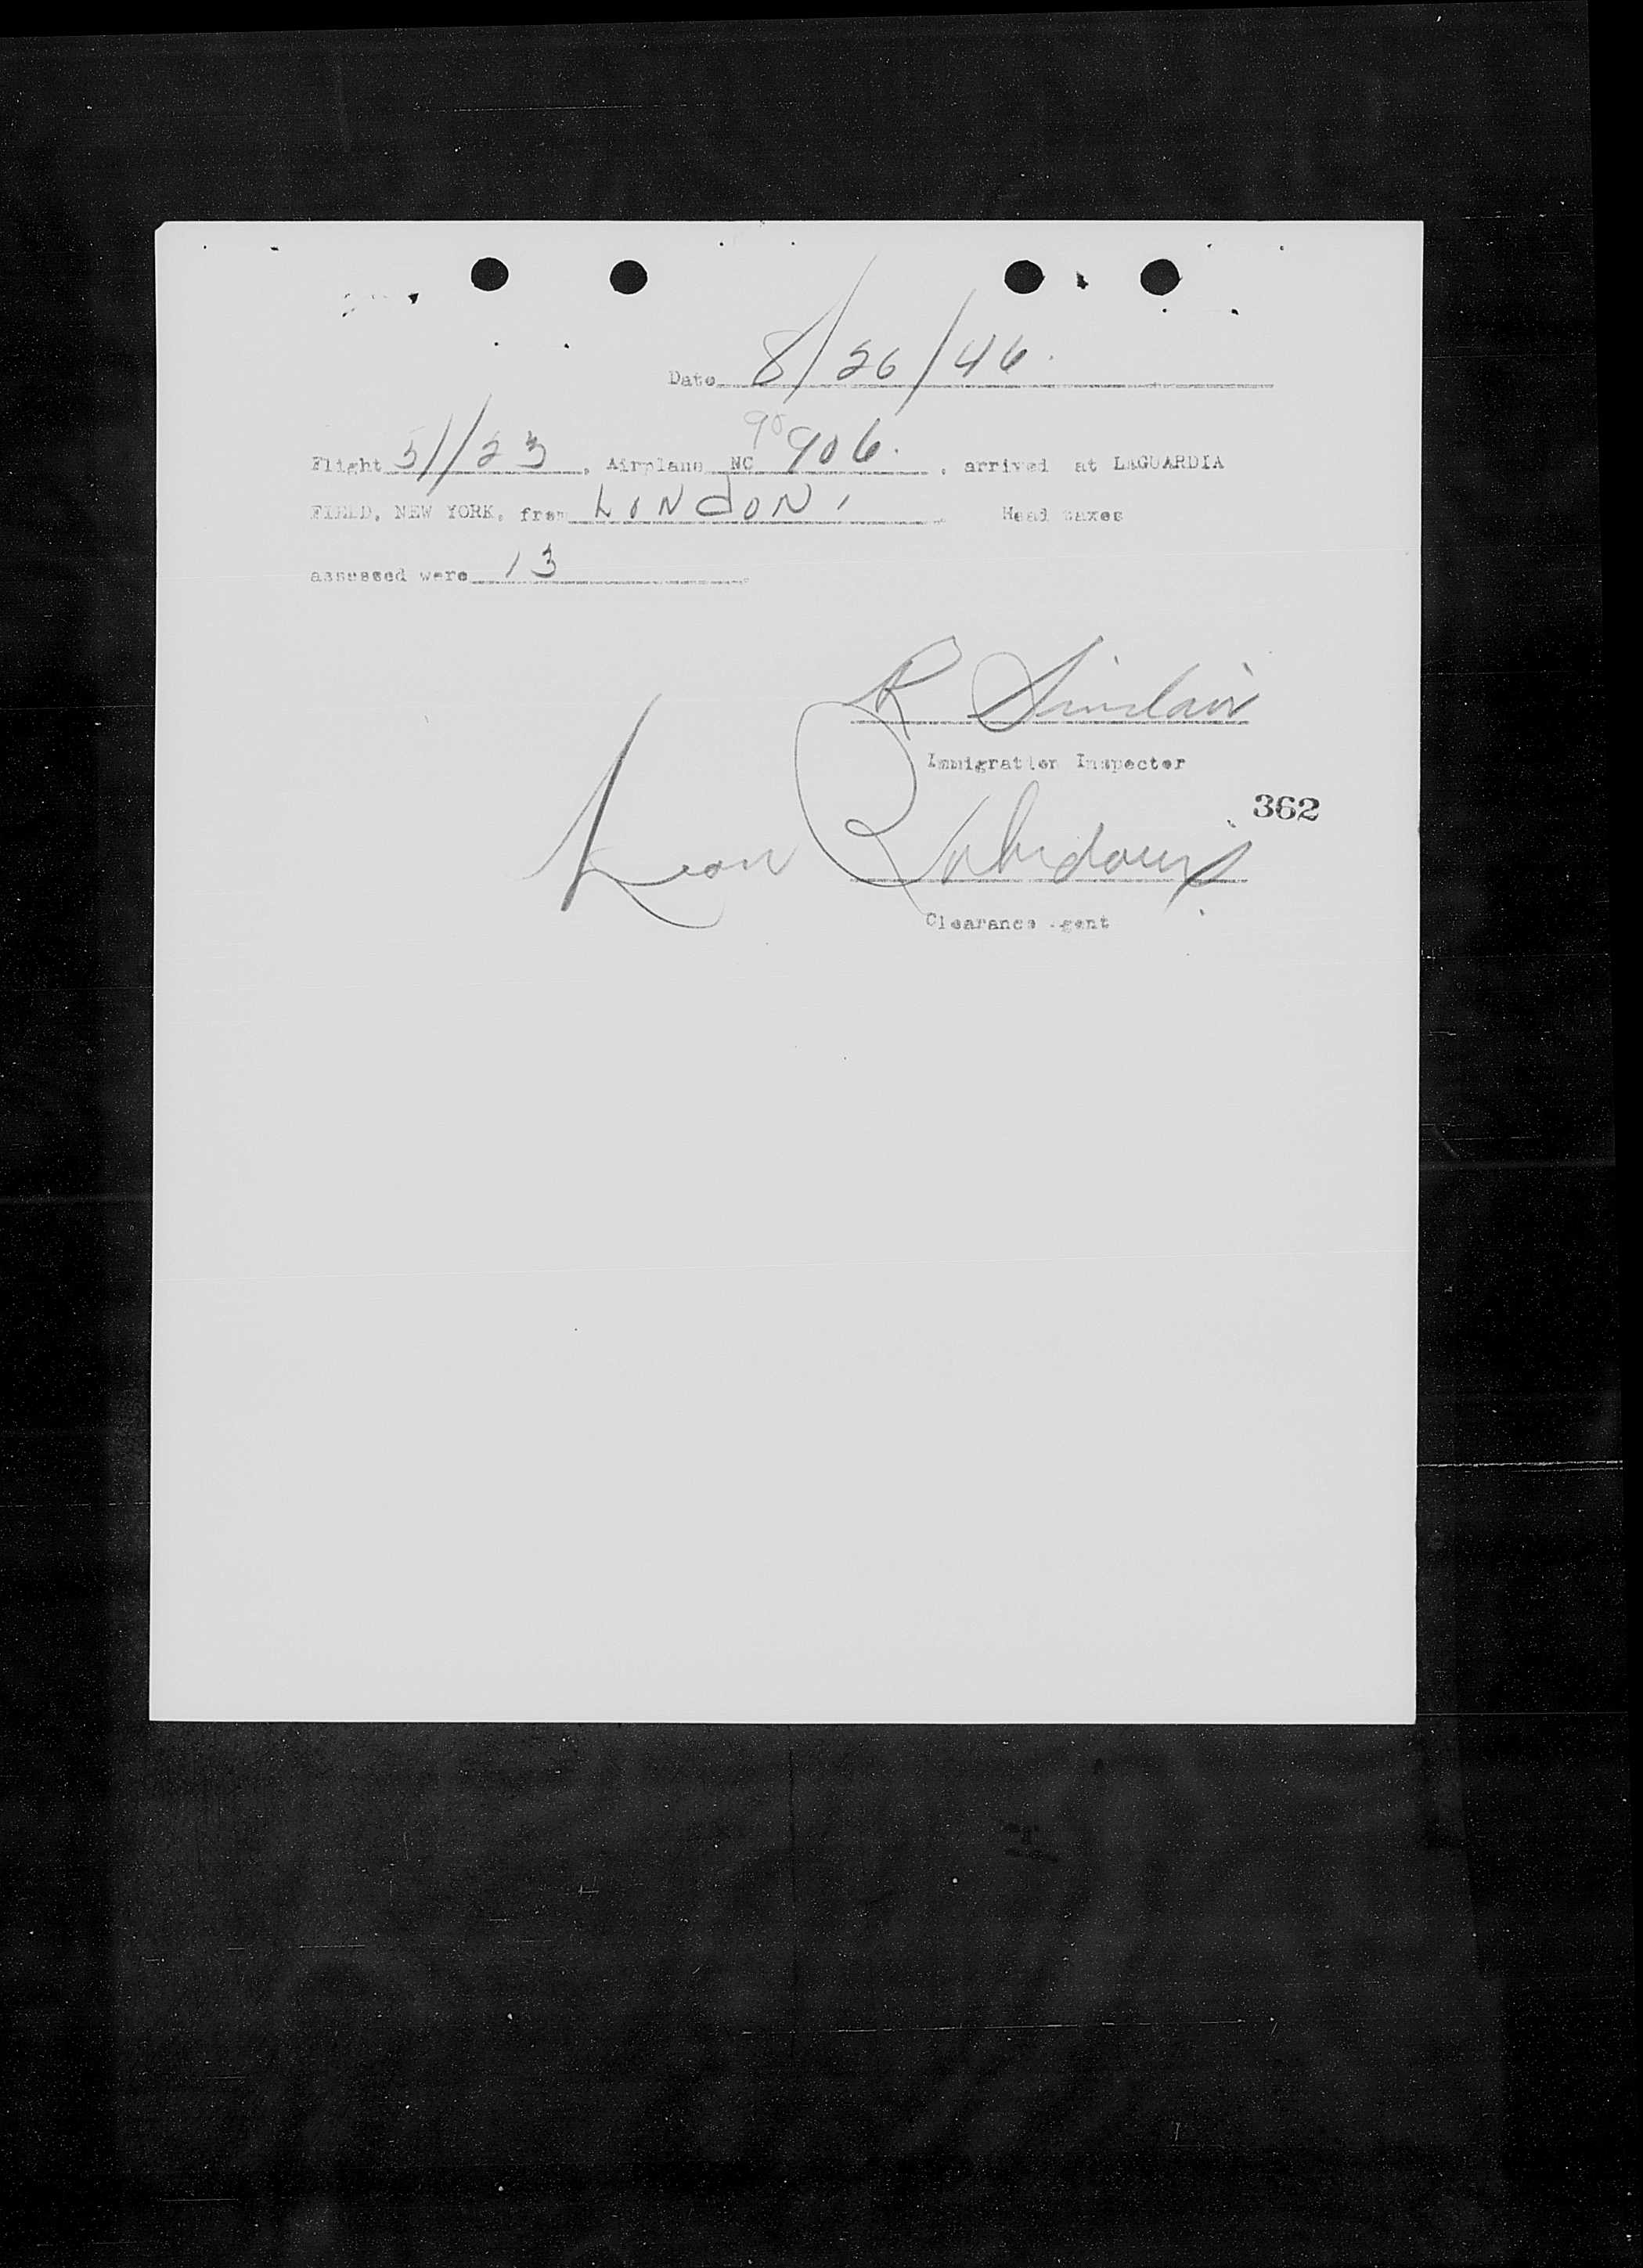 Date 8/26/46.
90
Flight 51/23, Airplane NC 906. , arrived at LAGUARDIA
FIELD, NEW YORK, from LONDON, Head taxes
assessed were 13
R Sinclair
Immigration Inspector
362
Leon
Clearance Agent